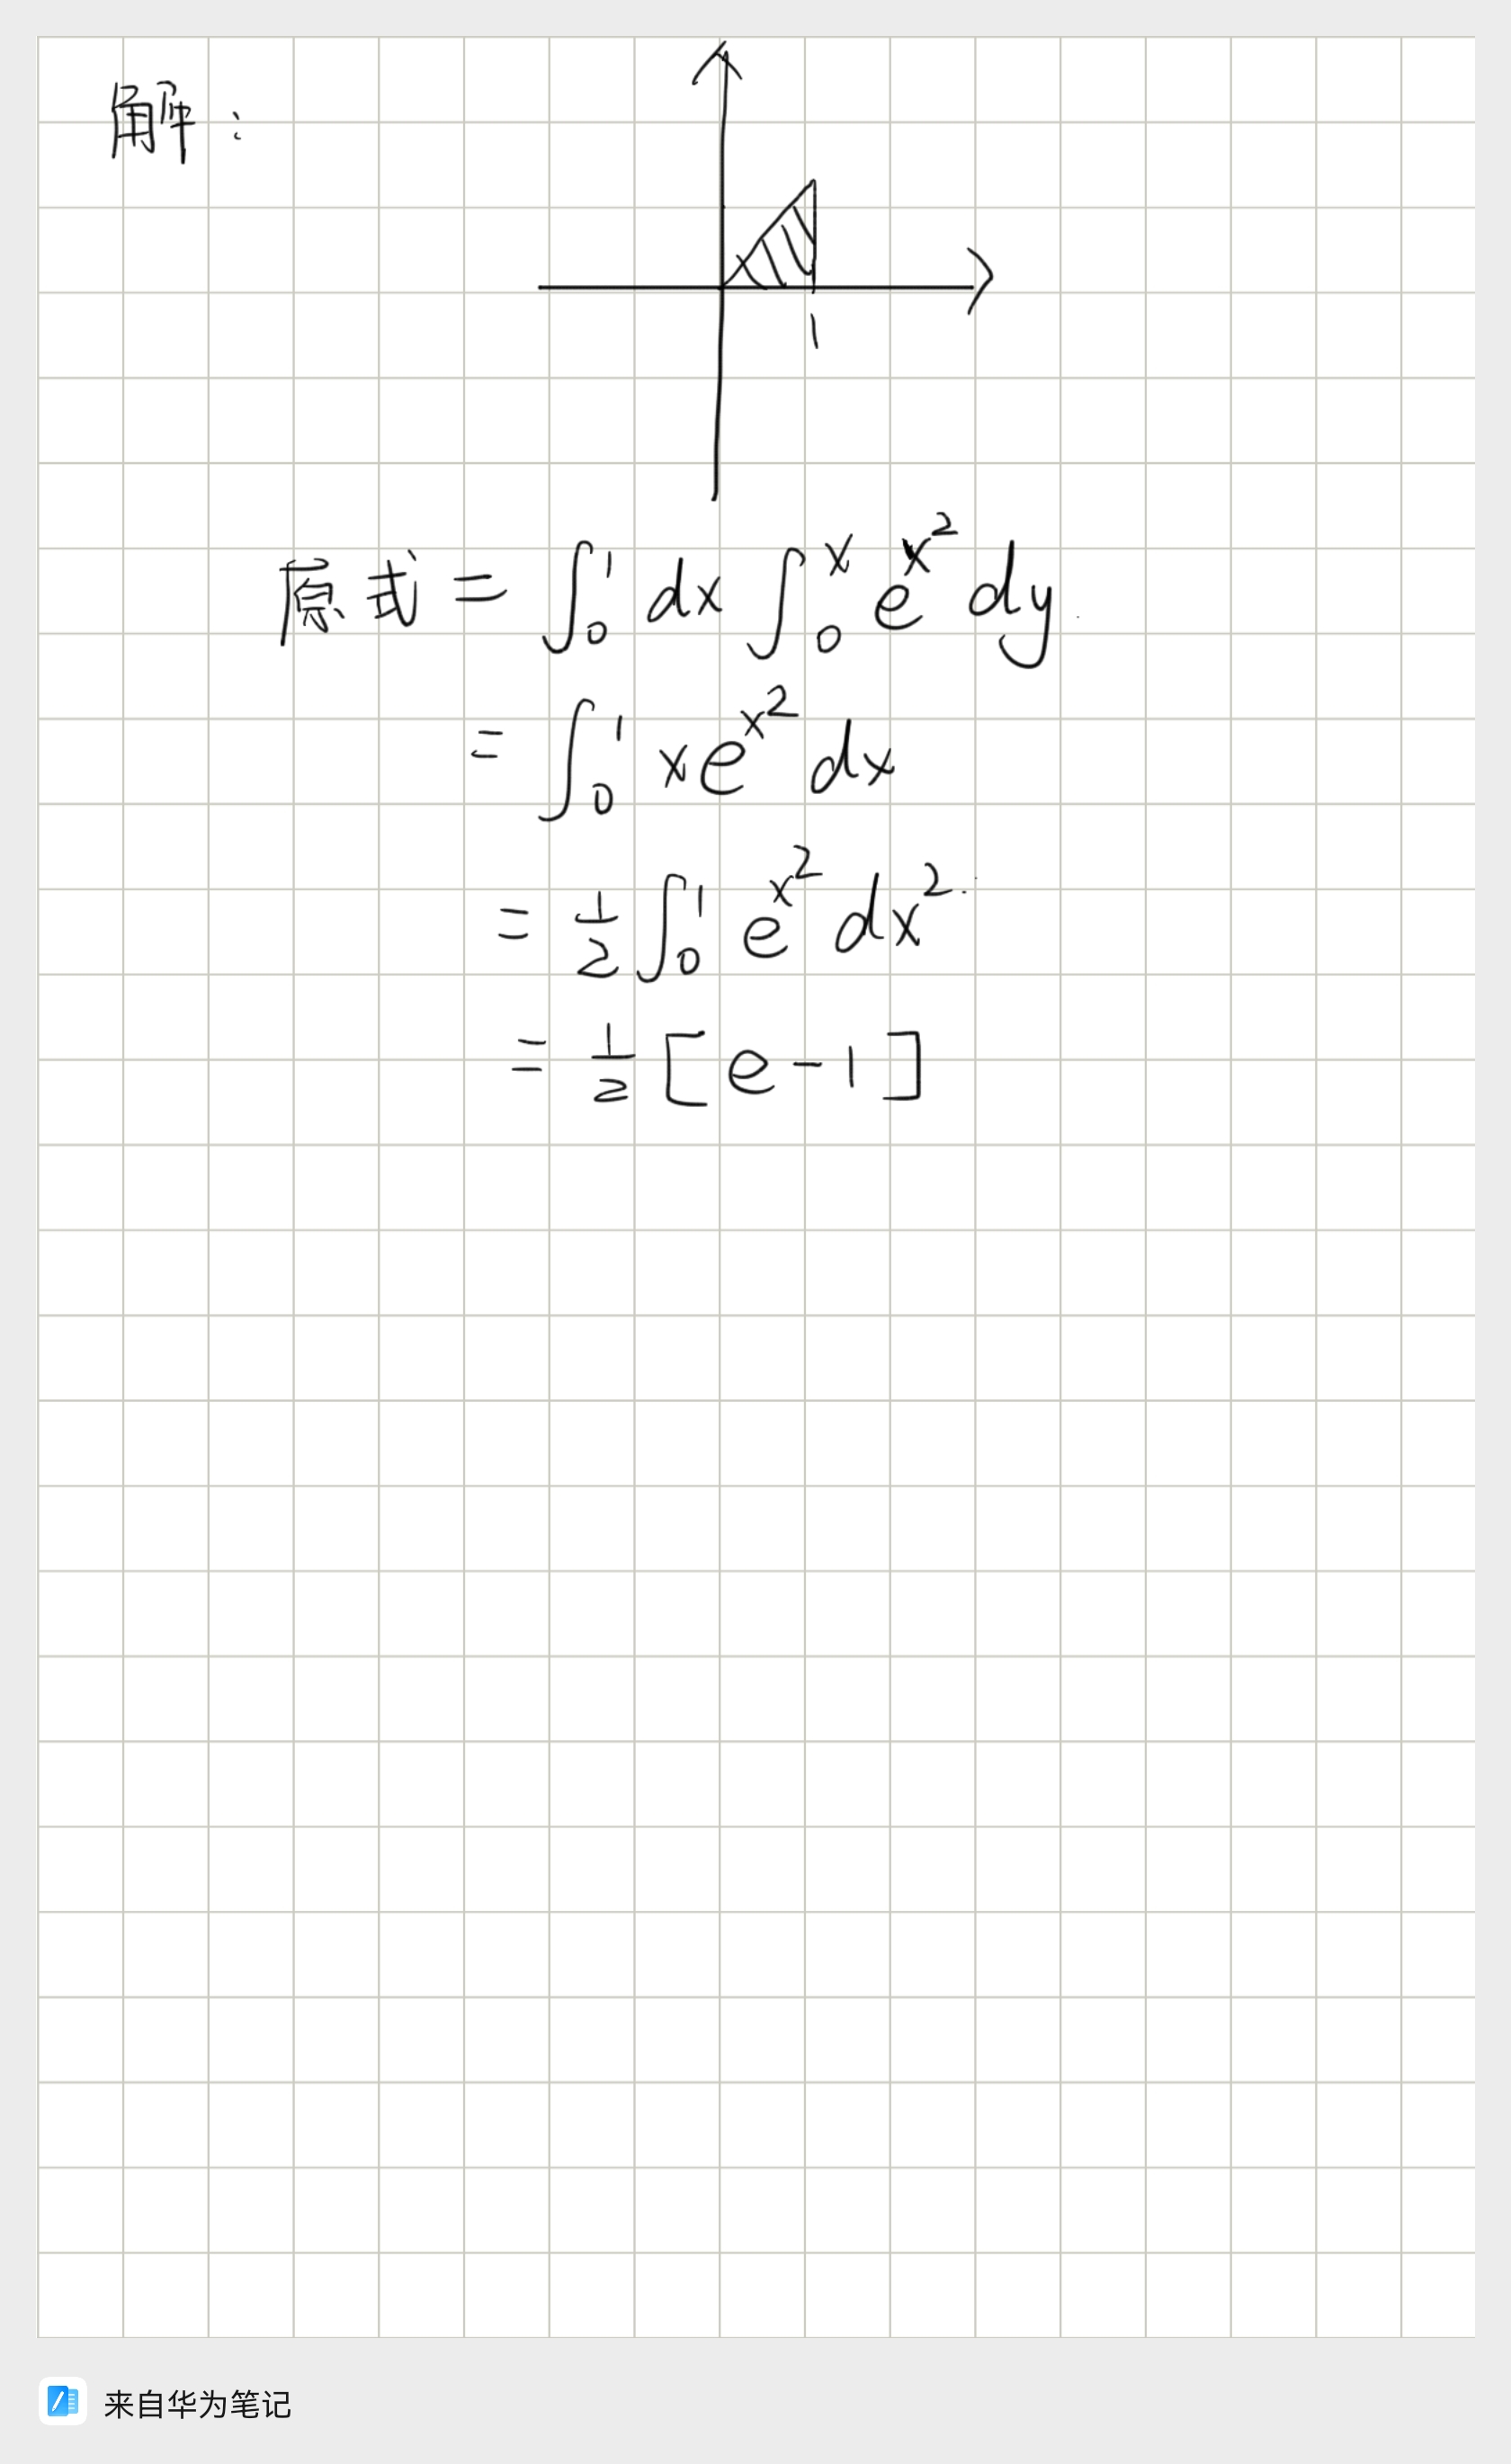 解：
1
原式 = ∫₀¹ dx ∫₀ˣ e^{x²} dy
= ∫₀¹ xe^{x²} dx
= 1/2 ∫₀¹ e^{x²} dx²
= 1/2 [e-1]
来自华为笔记